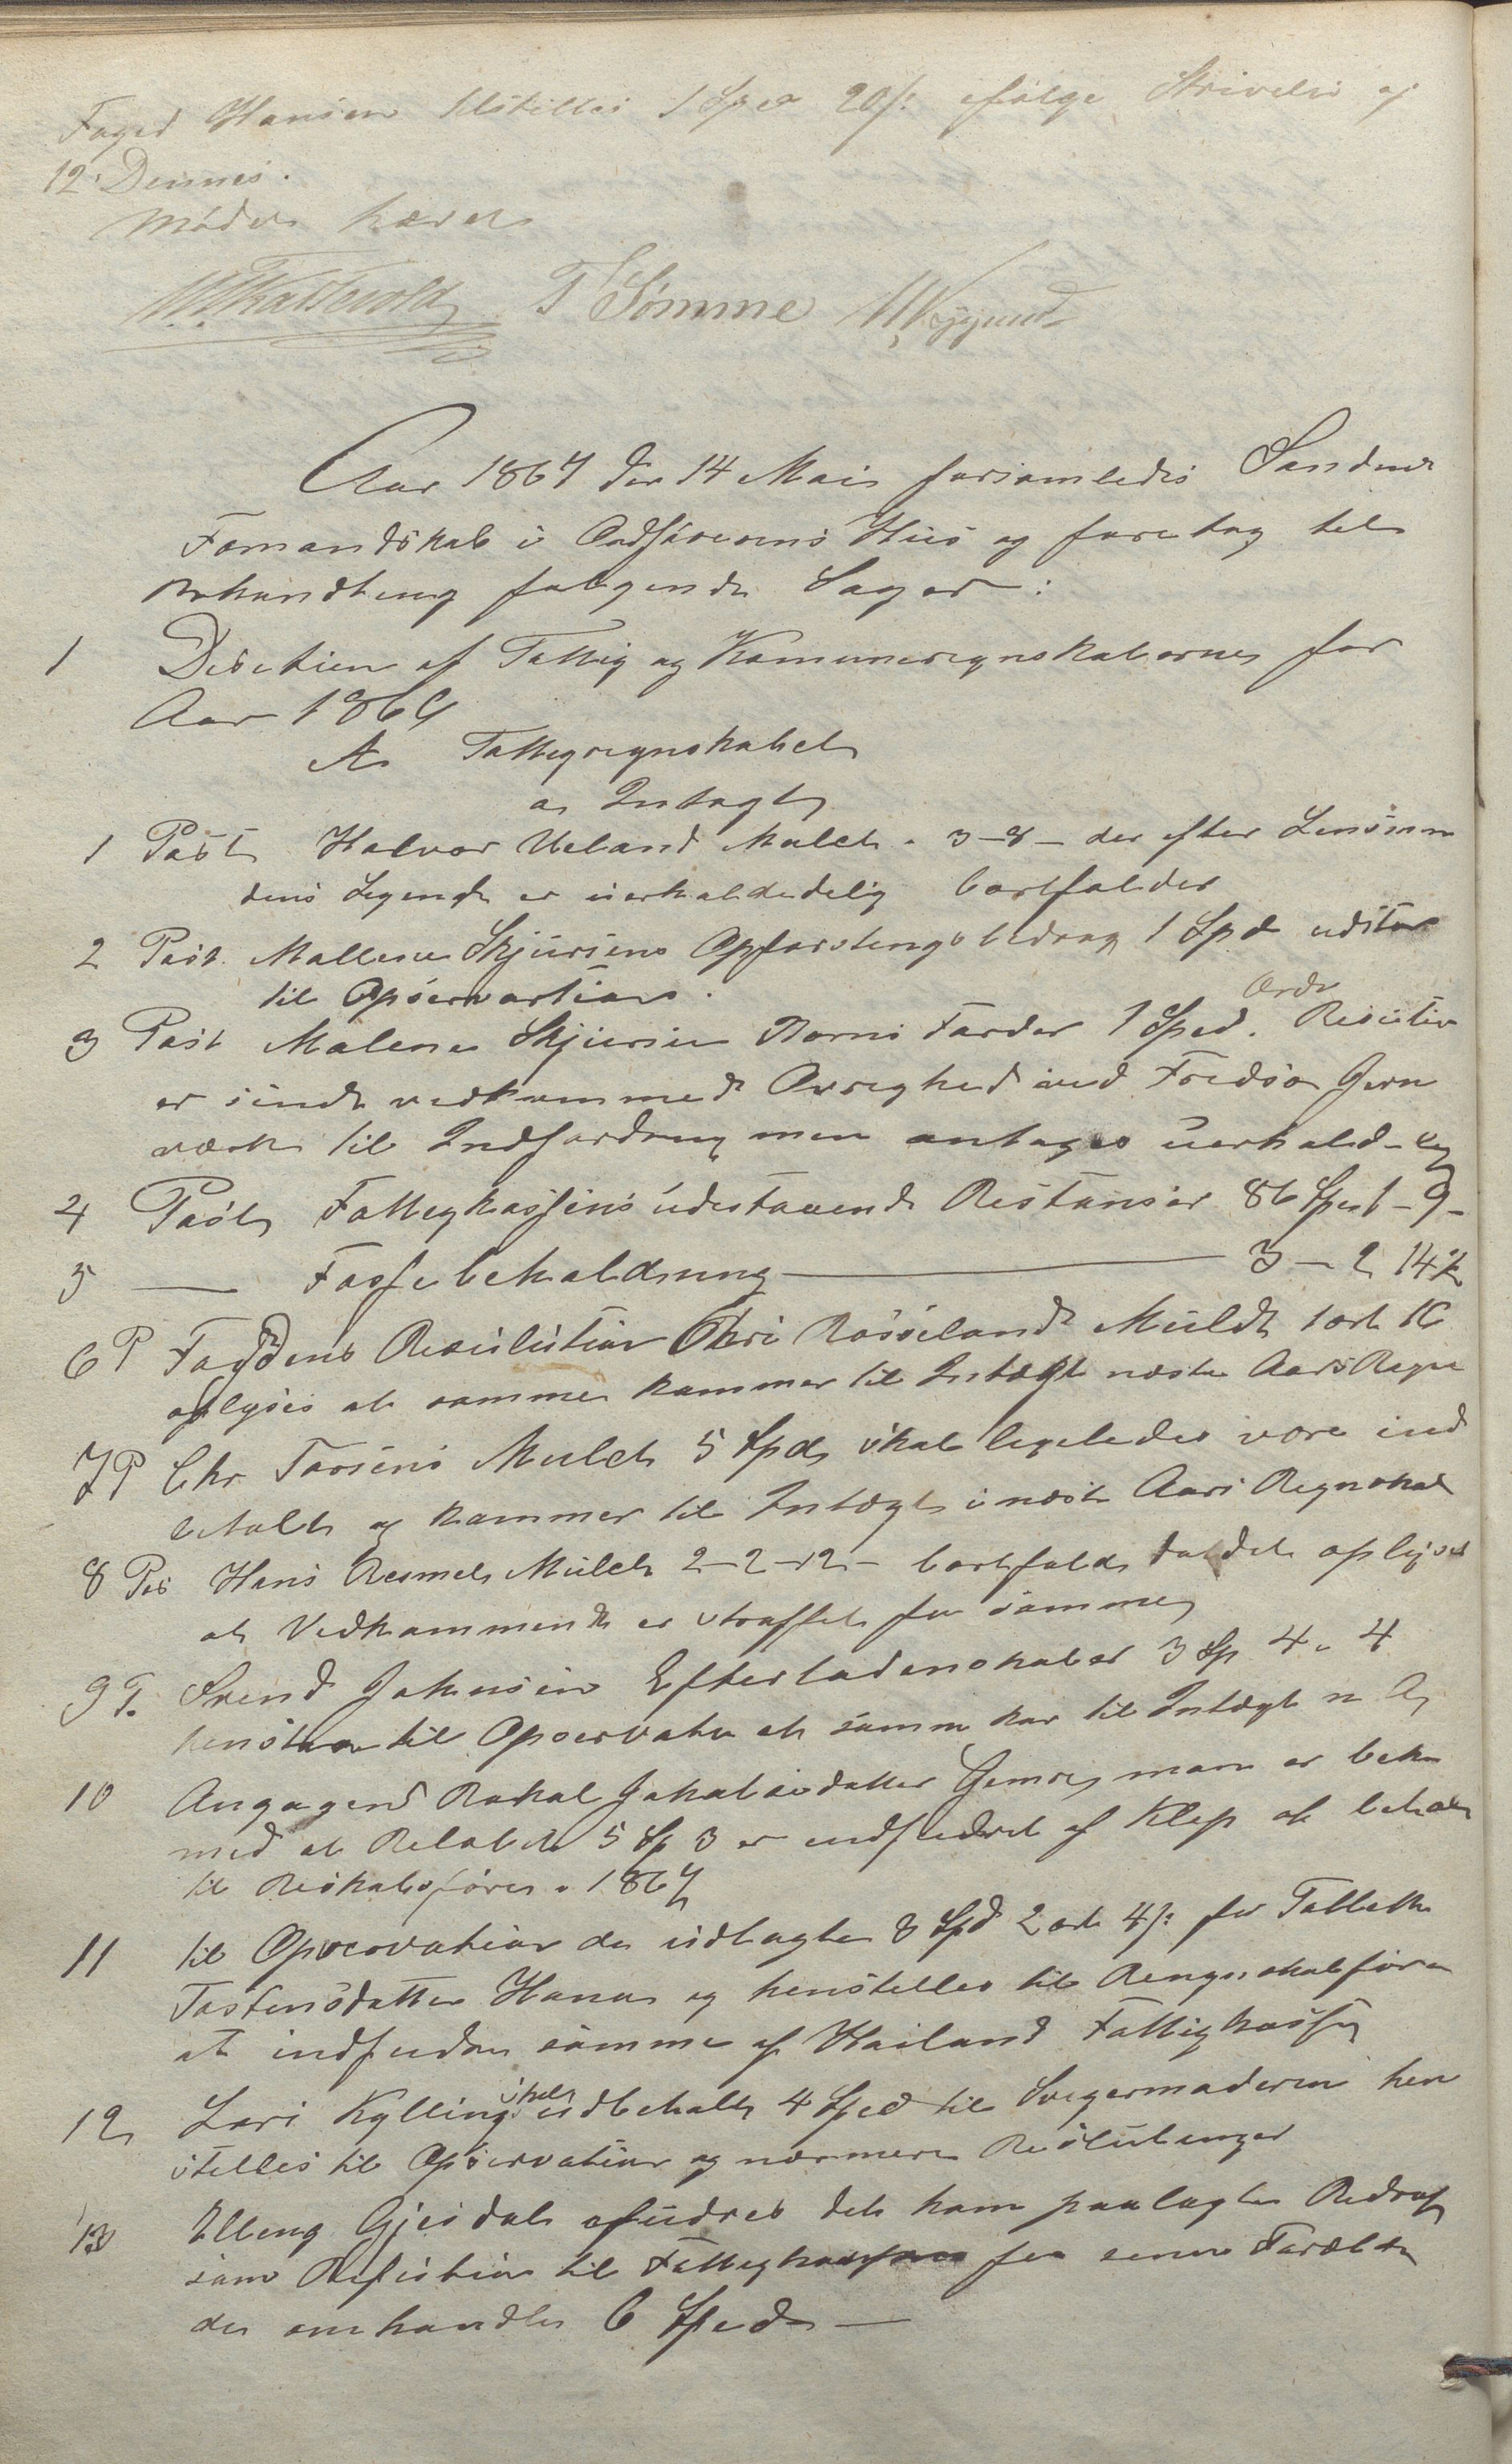 Foged Hansen tilstilles 1 Spd 20 s: ifølge Skrivelse af
12 Dennes.
Mødet hævet
T Sømme
Aar 1867 den 14 Mai forsamledes Sandnes
Formandskab i Ordførerens Huus og foretog til
Behandling følgende Sager:
1 Decition af Fattig og Komuneregnskaberne for
Aar 1866
A Fattigregnskabet
a, Indtægt
1 Post Halvor Ueland Mulct . 3-8- der efter Lensman
dens Sigende er uerholdedelig bortfalder
2 Post. Mallene Skjursens Opfostrings bidrag 1 Spd udstaar
til Opservartion.
3 Post Malene Skjursen Borns Farder 1 Sped. Resolution
er sendt vedkommend Øvrighed ved Jern
værk til Indfordring men antages uerhold-elig
4 Post Fattigkassens udestaaende Restanser 86 Spd 1-9-
5 — Kassebeholdning — 3-2 14½
6 P Fogdens Resulution Røsseland Muldt 1 ort 16
oplyses at samme kommer til Indtægt næste Aars Regn
7 P Chr Mulct 5 Spd, skal ligeledes være ind
betalt og kommer til Indtægt i næste Aars Regnskab
8 Pos Hans Mulct 2-2-12- bortfaldt da det oplyses
at Vedkommende er straffet for samme
9 P. Svend Johnsen Efterladenskaber 3 Sp 4 „ 4
henstaar til Opservation at samme kor til Indtægt n A,
10 Angagend Rakel Jakobsdatter man er bek
med at Beløbet 5 Sp 3 er indfudret af Klep at betale
til 1867
11 til Opservation de udlagte 8 Spd 2 ort 4 s: for
Tostensdatter Hana og henstilles til Rengnskabsføren
at indfudre samme af Haaland Fattigkasse
12 Lars Kylling skal udbetalt 4 Sped til Svigermoderen hen
stelles til Opservation og nærmere Resulutinger
13 Elling Gjesdal afudres det ham paalagte Bidrag
som Refusion til Fattigkassen for senne Forældre
der omhandler 6 Sped —